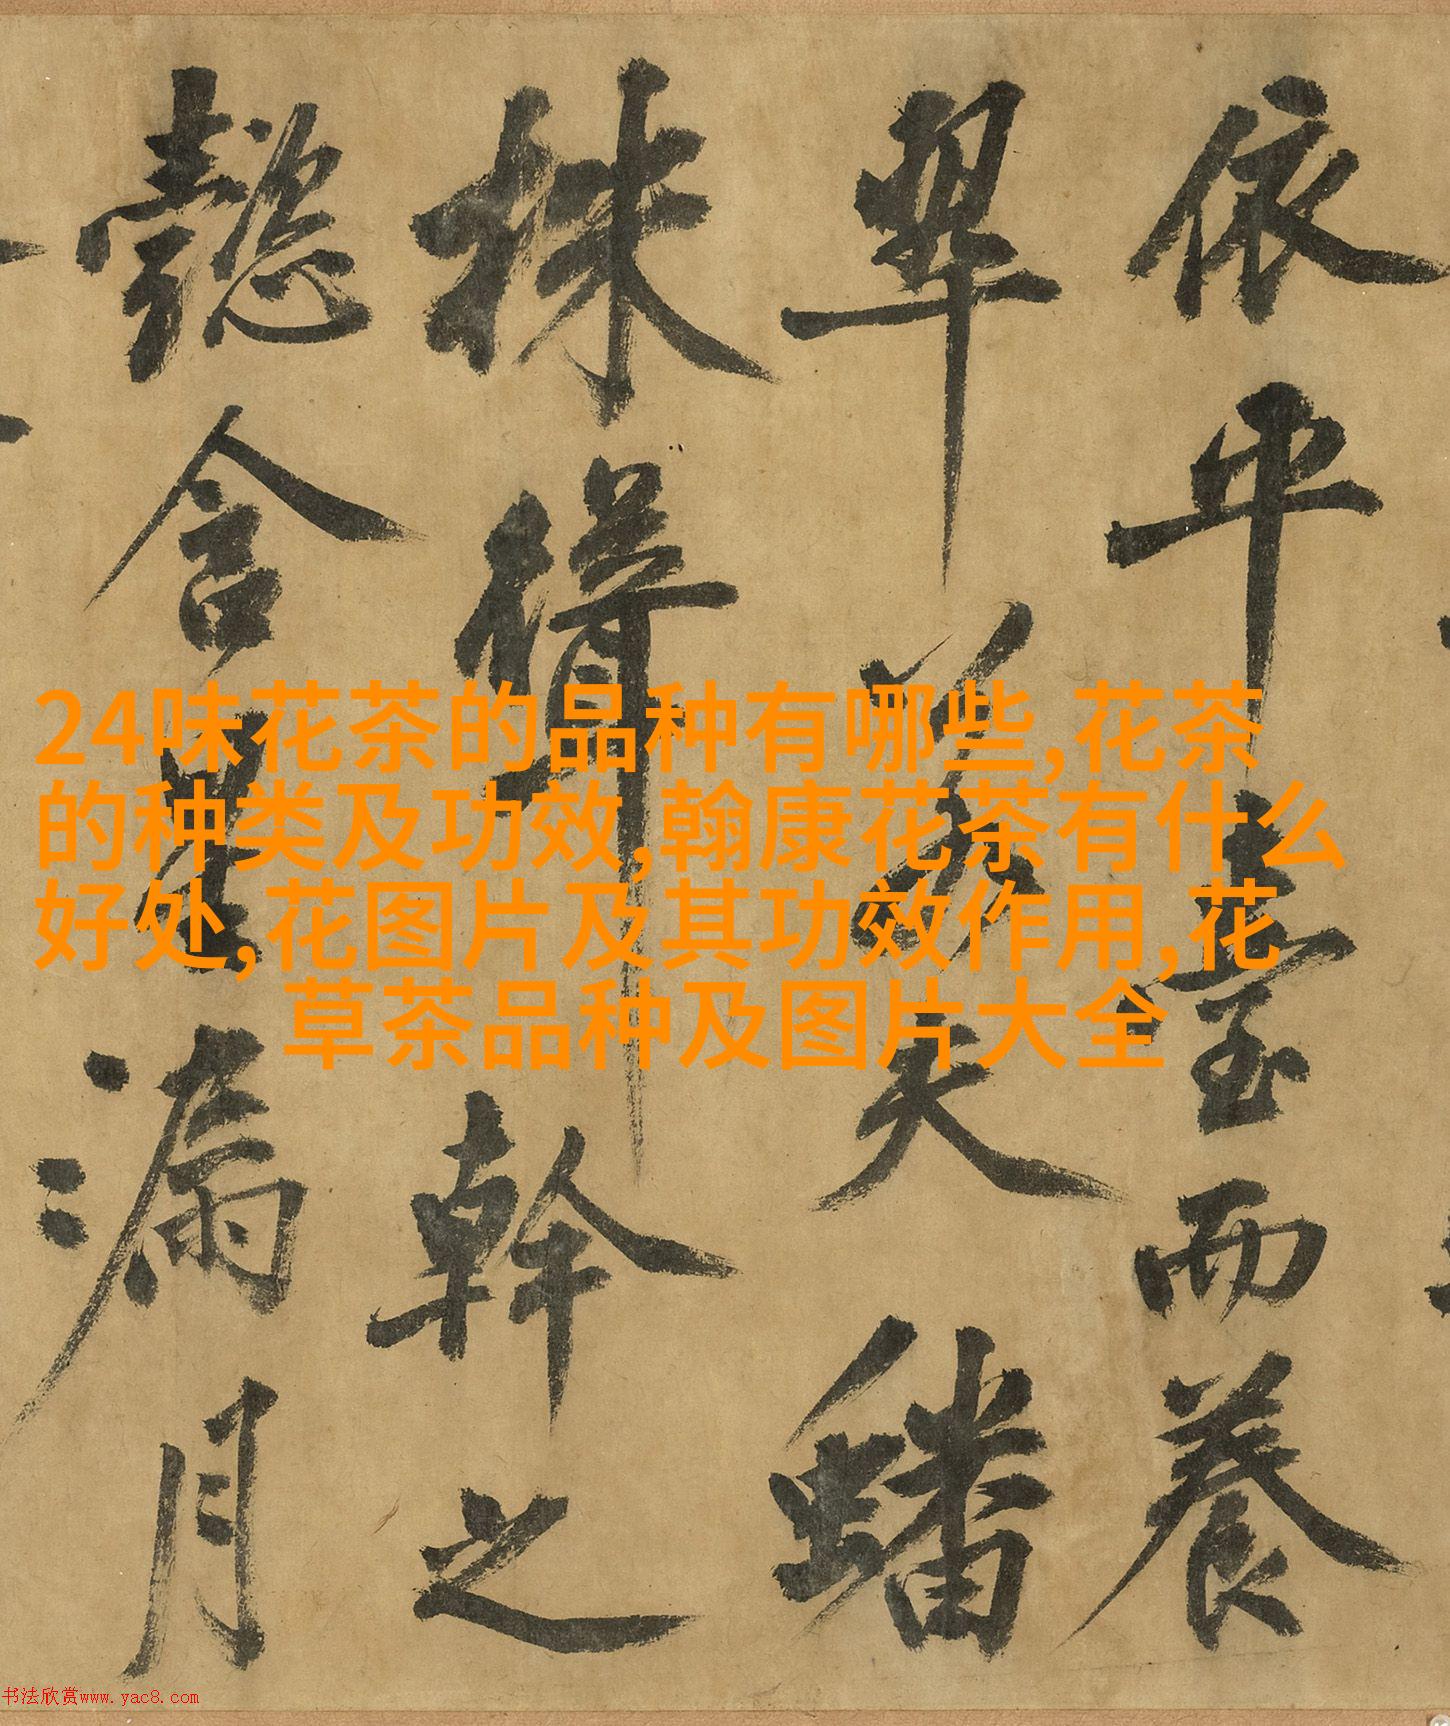 依平臺而養
翠若夫蟠
株幹之
懿含星漏月
24味花茶的品种有哪些,花茶
的种类及功效,翰康花茶有什么
好处,花图片及其功效作用,花
草茶品种及图片大全
书法欣赏www.yac8.com